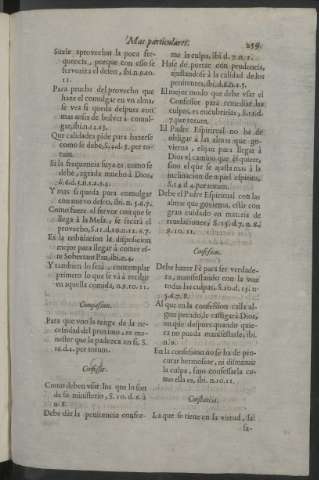 Mas particulares. 259.
Suele aprovechar la poca fre-
quencia, porque con esso se
fervoriza el deseo, ibi.n.9.10.
11.
Para prueba del provecho que
haze el comulgar en vn alma,
se vea si queda despues con
mas ansia de bolver à comul-
gar, ibi.n.12.13.
Que calidades pide para hazerse
como se debe, S. 22.d.5. per to-
tum.
Si la frequencia suya es como se
debe, agrada mucho à Dios,
Y mas si queda para comulgar
con nuevo deseo, ibi. n. 5.6.7.
Como fuere el fervor con que se
llega à la Mesa, se sacará el
provecho,
Es la embriacion la disposicion
mejor para llegar à comer es-
te Soberano Pan, ibi.n.4.
Y tambien lo será, contemplar
primero lo que se và à recibir
en aquella comida, n.9.10.11.
Compassion.
Para que vno la tenga de la ne-
cessidad del proximo, es me-
nester que la padezca en sì, S.
10.d.1. per totum.
Confessor.
Como deben vsar los que lo son
de su ministerio, S. 10.d.2. à
n.8.
Debe dàr la penitencia confor-
me la culpa, ibi d. 7. n. 1.
Hase de portar con prudencia,
ajustandose à la calidad de los
penitentes, ibi.
El mejor modo que debe vsar el
Confessor para remediar las
culpas, es encubrirlas,
7. per totum.
El Padre Espiritual no ha de
obligar à las almas que go-
vierna, elijan para llegar à
Dios el camino que èl quiere,
sino el que se ajusta mas à la
inclinacion de aquel espiritu,
S. 14. d. 4. per totum.
Debe el Padre Espiritual con las
almas que govierna, estàr con
gran cuidado en materia de
9. 10. 11.
Confession.
Debe hazerse para ser verdade-
ra, manifestando con la voz
todas las culpas,
5.6.7.8.
Al que en la confession calla al-
gun pecado, le castigarà Dios,
aunque despues quando quie-
ra no pueda manifestarle, ibi.
n.9.
En la confession no se ha de pro-
curar hermosear, ni disminuir
la culpa, sino confessarla co-
mo ella es, ibi. n. 10. 11.
Constancia.
La que se tiene en la virtud, la
sa-